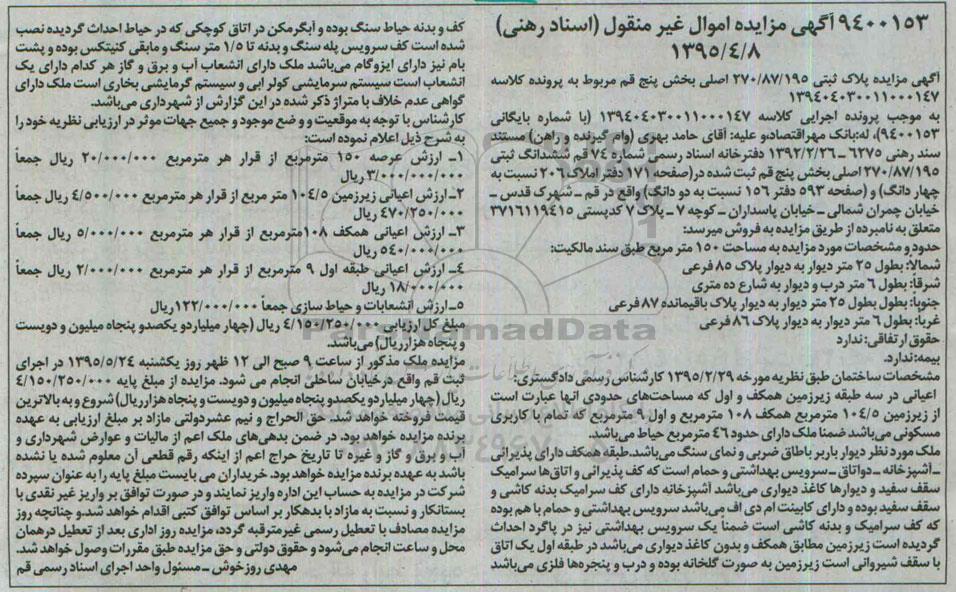 ۹۴۰۰۱۵۳ آگهی مزایده اموال غیر منقول (اسناد رهنی)
۱۳۹۵/۴/۸
آگهی مزایده پلاک ثبتی ۲۷۰/۸۷/۱۹۵ اصلی بخش پنج قم مربوط به پرونده کلاسه
۱۳۹۴۰۴۰۳۰۰۱۱۰۰۰۱۴۷
به موجب پرونده اجرایی کلاسه ۱۳۹۴۰۴۰۳۰۰۱۱۰۰۰۱۴۷ (با شماره بایگانی
۹۴۰۰۱۵۳)، له:بانک مهراقتصادو علیه: آقای حامد بهری (وام گیرنده و راهن) مستند
سند رهنی ۶۲۷۵ ـ ۱۳۹۲/۲/۲۶ دفترخانه اسناد رسمی شماره ۷۴ قم ششدانگ ثبتی
۲۷۰/۸۷/۱۹۵ اصلی بخش پنج قم ثبت شده در(صفحه ۱۷۱ دفتر املاک ۲۰۶ نسبت به
چهار دانگ) و (صفحه ۵۹۳ دفتر ۱۵۶ نسبت به دو دانگ) واقع در قم ـ شهرک قدس ـ
خیابان چمران شمالی ـ خیابان پاسداران ـ کوچه ۷ ـ پلاک ۷ کدپستی ۳۷۱۶۱۱۹۴۱۵
متعلق به نامبرده از طریق مزایده به فروش میرسد:
حدود و مشخصات مورد مزایده به مساحت ۱۵۰ متر مربع طبق سند مالکیت:
شمالا: بطول ۲۵ متر دیوار به دیوار پلاک ۸۵ فرعی
شرقا: بطول ۶ متر درب و دیوار به شارع ده متری
جنوبا: بطول بطول ۲۵ متر دیوار به دیوار پلاک باقیمانده ۸۷ فرعی
غربا: بطول ۶ متر دیوار به دیوار پلاک ۸۶ فرعی
حقوق ارتفاقی: ندارد
بیمه:ندارد.
مشخصات ساختمان طبق نظریه مورخه ۱۳۹۵/۲/۲۹ کارشناس رسمی دادگستری:
اعیانی در سه طبقه زیرزمین همکف و اول که مساحت‌های حدودی انها عبارت است
از زیرزمین ۱۰۴/۵ مترمربع همکف ۱۰۸ مترمربع و اول ۹ مترمربع که تمام با کاربری
مسکونی می‌باشد ضمنا ملک دارای حدود ۴۶ مترمربع حیاط می‌باشد
ملک مورد نظر دیوار باربر باطاق ضربی و نمای سنگ می‌باشد.طبقه همکف دارای پذیرائی
ـ آشپزخانه ـ دواتاق ـ سرویس بهداشتی و حمام است که کف پذیرانی و اتاق‌ها سرامیک
سقف سفید و دیوارها کاغذ دیواری می‌باشد آشپزخانه دارای کف سرامیک بدنه کاشی و
سقف سفید بوده و دارای کابینت ام دی اف می‌باشد سرویس بهداشتی و حمام با هم بوده
که کف سرامیک و بدنه کاشی است ضمنا یک سرویس بهداشتی نیز در پاگرد احداث
گردیده است زیرزمین مطابق همکف و بدون کاغذ دیواری می‌باشد در طبقه اول یک اتاق
با سقف شیروانی است زیرزمین به صورت گلخانه بوده و درب و پنجره‌ها فلزی می‌باشد
کف و بدنه حیاط سنگ بوده و آبگرمکن در اتاق کوچکی که در حیاط احداث گردیده نصب
شده است کف سرویس پله سنگ و بدنه تا ۱/۵ متر سنگ و مابقی کنیتکس بوده و پشت
بام نیز دارای ایزوگام می‌باشد ملک دارای انشعاب آب و برق و گاز هر کدام دارای یک
انشعاب است سیستم سرمایشی کولر ابی و سیستم گرمایشی بخاری است ملک دارای
گواهی عدم خلاف با متراژ ذکر شده در این گزارش از شهرداری می‌باشد.
کارشناس با توجه به موقعیت و وضع موجود و جمیع جهات موثر در ارزیابی نظریه خود را
به شرح ذیل اعلام نموده است:
۱ـ ارزش عرصه ۱۵۰ مترمربع از قرار هر مترمربع ۲۰/۰۰۰/۰۰۰ ریال جمعاً
۳/۰۰۰/۰۰۰/۰۰۰ ریال
۲ـ ارزش اعیانی زیرزمین ۱۰۴/۵ متر مربع از قرار هر مترمربع ۴/۵۰۰/۰۰۰ ریال جمعاً
۴۷۰/۲۵۰/۰۰۰ ریال
۳ـ ارزش اعیانی همکف ۱۰۸مترمربع از قرار هر مترمربع ۵/۰۰۰/۰۰۰ ریال جمعاً
۵۴۰/۰۰۰/۰۰۰ ریال
۴ـ ارزش اعیانی طبقه اول ۹ مترمربع از قرار هر مترمربع ۲/۰۰۰/۰۰۰ ریال جمعاً
۱۸/۰۰۰/۰۰۰ ریال
۵ـ ارزش انشعابات و حیاط سازی جمعاً ۱۲۲/۰۰۰/۰۰۰ ریال
مبلغ کل ارزیابی ۴/۱۵۰/۲۵۰/۰۰۰ ریال (چهار میلیاردو یکصدو پنجاه میلیون و دویست
و پنجاه هزارریال) می‌باشد.
مزایده ملک مذکور از ساعت ۹ صبح الی ۱۲ ظهر روز یکشنبه ۱۳۹۵/۵/۲۴ در اجرای
ثبت قم واقع درخیابان ساحلی انجام می شود. مزایده از مبلغ پایه ۴/۱۵۰/۲۵۰/۰۰۰
ریال (چهار میلیاردو یکصدو پنجاه میلیون و دویست و پنجاه هزارریال) شروع و به بالاترین
قیمت فروخته خواهد شد. حق الحراج و نیم عشردولتی مازاد بر مبلغ ارزیابی به عهده
برنده مزایده خواهد بود. در ضمن بدهی‌های ملک اعم از مالیات و عوارض شهرداری و
آب و برق و گاز و غیره تا تاریخ حراج اعم از اینکه رقم قطعی آن معلوم شده یا نشده
باشد به عهده برنده مزایده خواهد بود. خریداران می بایست مبلغ پایه را به عنوان سپرده
شرکت در مزایده به حساب این اداره واریز نمایند و در صورت توافق بر واریز غیر نقدی با
بستانکار و نسبت به مازاد با بدهکار بر اساس توافق کتبی اقدام خواهد شد.و چنانچه روز
مزایده مصادف با تعطیل رسمی غیرمترقبه گردد، مزایده روز اداری بعد از تعطیل درهمان
محل و ساعت انجام می‌شود و حقوق دولتی و حق مزایده طبق مقررات وصول خواهد شد.
مهدی روزخوش ـ مسئول واحد اجرای اسناد رسمی قم
ParsNamadData